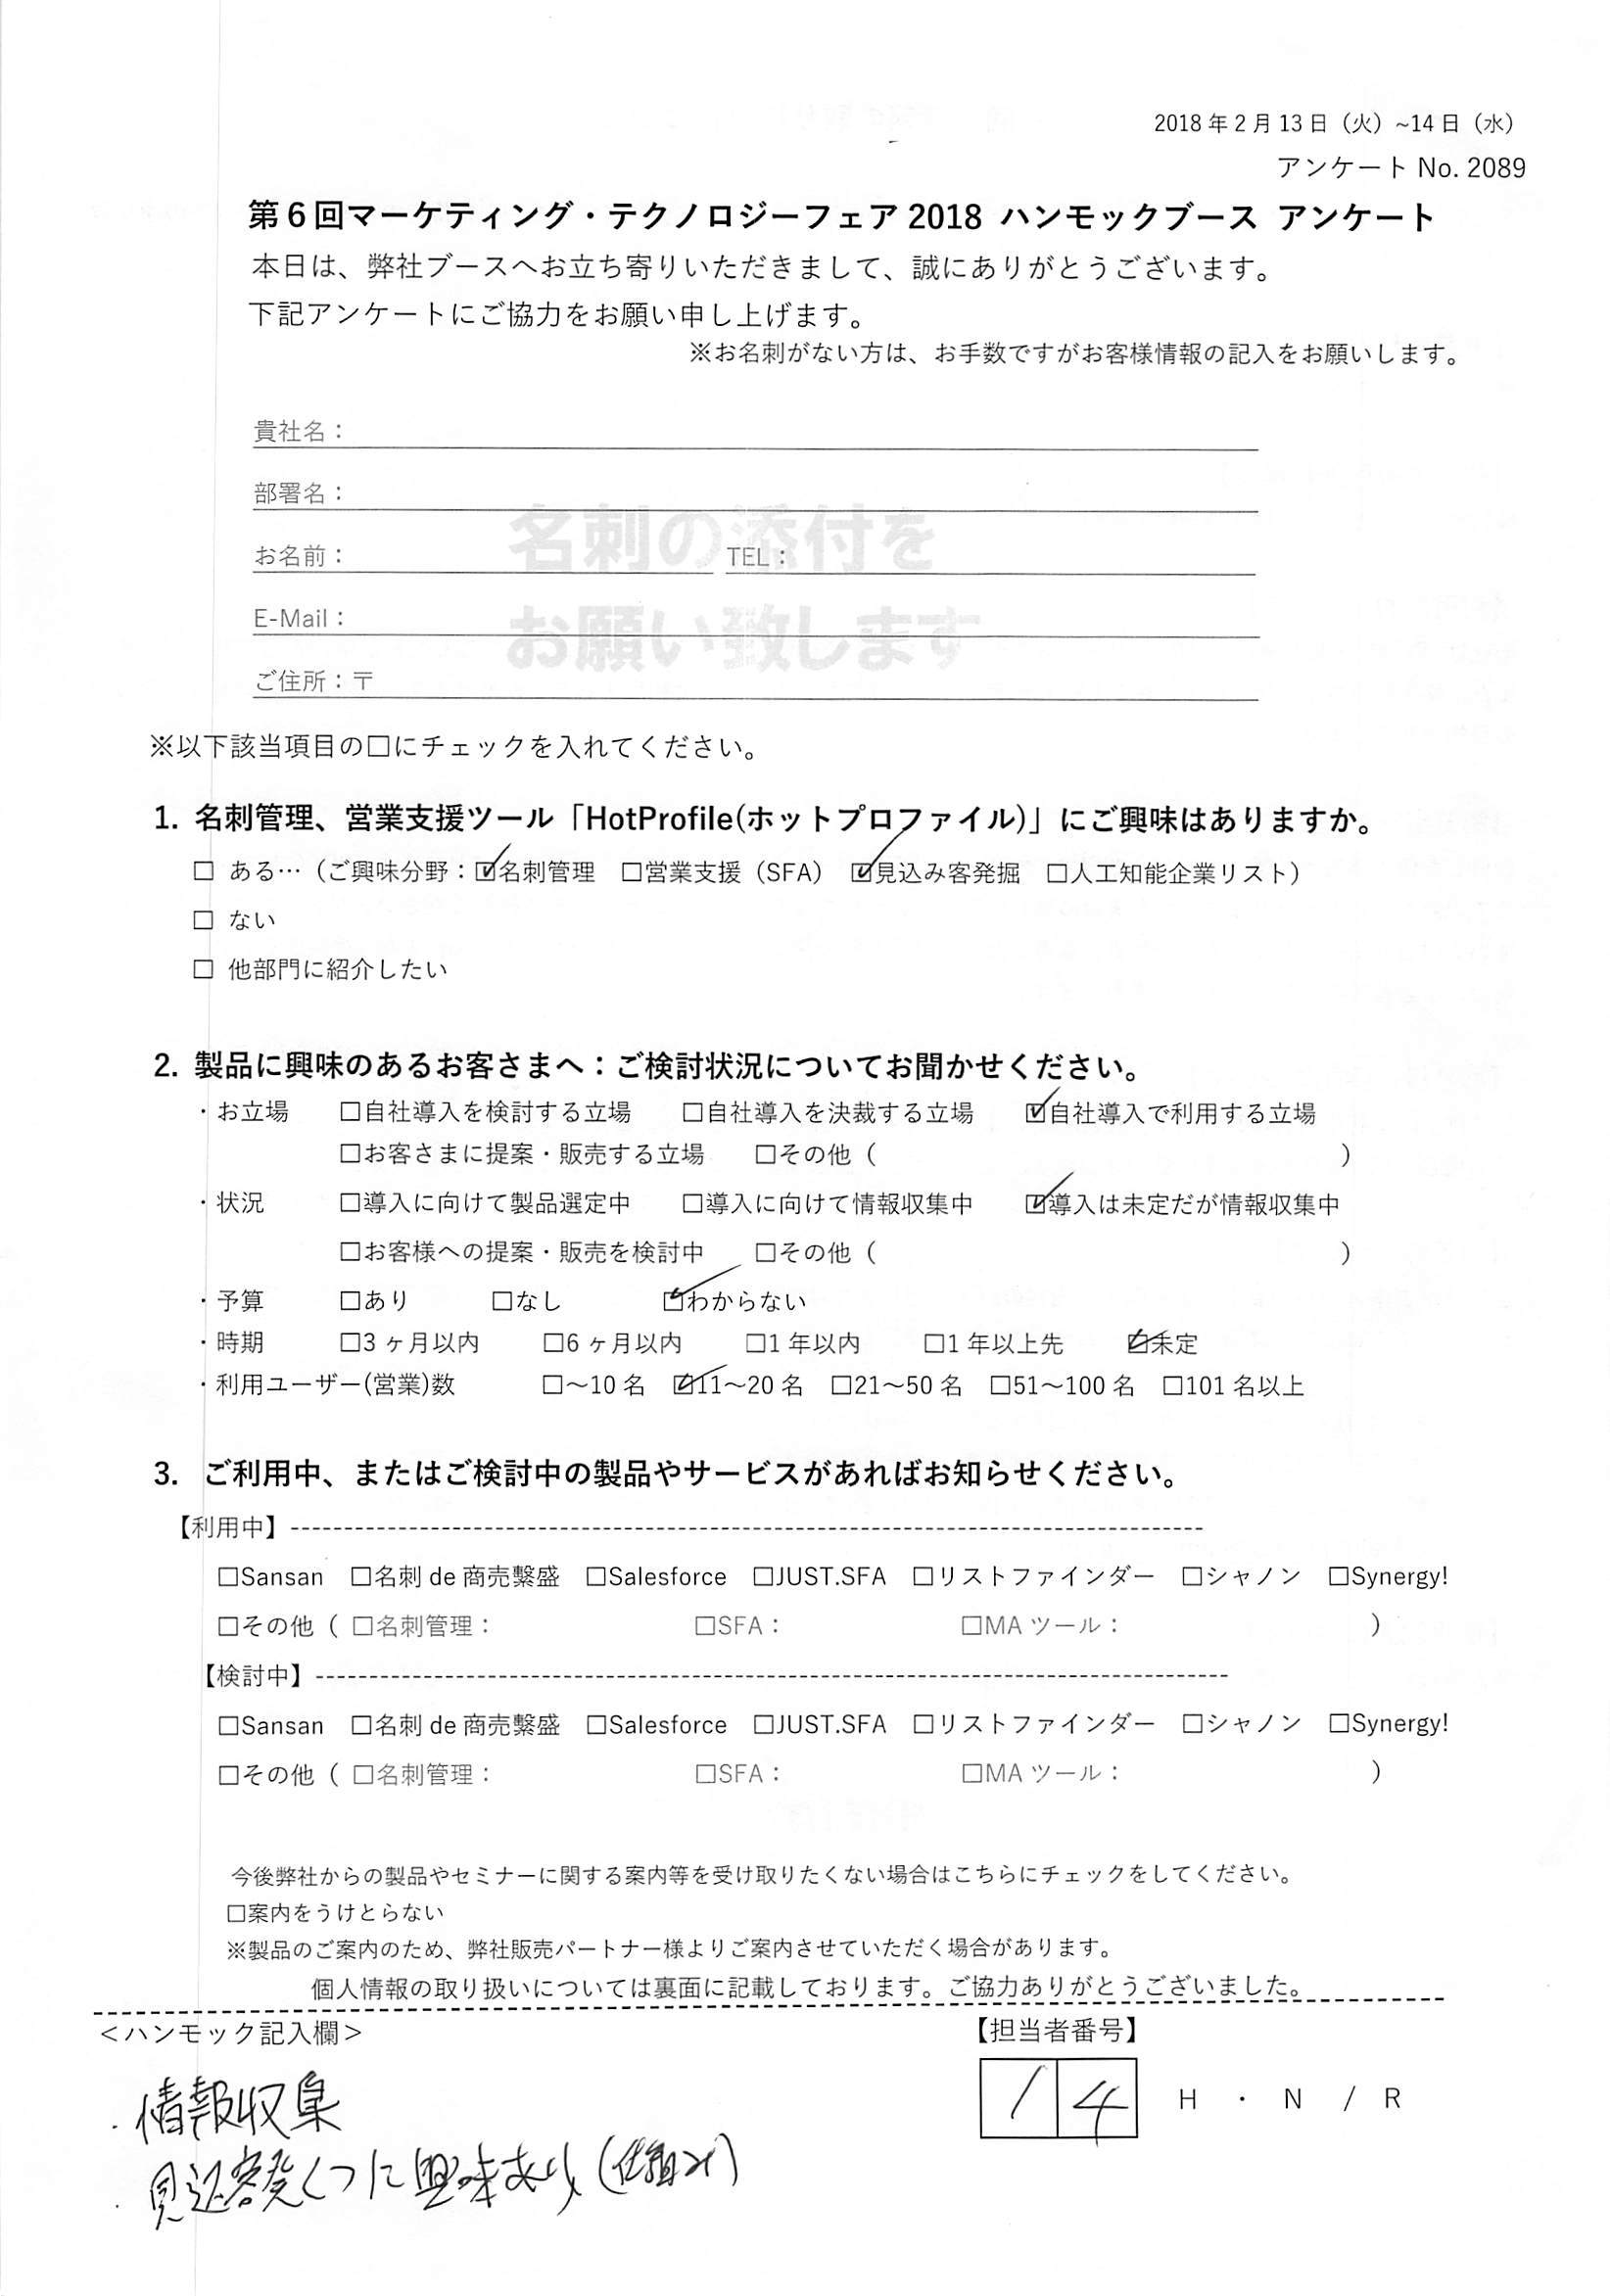 2018年2月13日（火）~14日（水）
アンケート No. 2089
第6回マーケティング・テクノロジーフェア 2018 ハンモックブース アンケート
本日は、弊社ブースへお立ち寄りいただきまして、誠にありがとうございます。
下記アンケートにご協力をお願い申し上げます。
※お名刺がない方は、お手数ですがお客様情報の記入をお願いします。
貴社名：
部署名：
名刺の添付を
お名前： TEL：
E-Mail：
お願い致します
ご住所：〒
※以下該当項目の□にチェックを入れてください。
1. 名刺管理、営業支援ツール「HotProfile(ホットプロファイル)」にご興味はありますか。
□ ある…（ご興味分野：☑名刺管理 □営業支援（SFA） ☑見込み客発掘 □人工知能企業リスト）
□ ない
□ 他部門に紹介したい
2. 製品に興味のあるお客さまへ：ご検討状況についてお聞かせください。
・お立場 □自社導入を検討する立場 □自社導入を決裁する立場 ☑自社導入で利用する立場
□お客さまに提案・販売する立場 □その他（ ）
・状況 □導入に向けて製品選定中 □導入に向けて情報収集中 ☑導入は未定だが情報収集中
□お客様への提案・販売を検討中 □その他（ ）
・予算 □あり □なし ☑わからない
・時期 □3ヶ月以内 □6ヶ月以内 □1年以内 □1年以上先 ☑未定
・利用ユーザー(営業)数 □～10名 ☑11～20名 □21～50名 □51～100名 □101名以上
3. ご利用中、またはご検討中の製品やサービスがあればお知らせください。
【利用中】
□Sansan □名刺de商売繫盛 □Salesforce □JUST.SFA □リストファインダー □シャノン □Synergy!
□その他（ □名刺管理： □SFA： □MAツール： ）
【検討中】
□Sansan □名刺de商売繫盛 □Salesforce □JUST.SFA □リストファインダー □シャノン □Synergy!
□その他（ □名刺管理： □SFA： □MAツール： ）
今後弊社からの製品やセミナーに関する案内等を受け取りたくない場合はこちらにチェックをしてください。
□案内をうけとらない
※製品のご案内のため、弊社販売パートナー様よりご案内させていただく場合があります。
個人情報の取り扱いについては裏面に記載しております。ご協力ありがとうございました。
＜ハンモック記入欄＞ 【担当者番号】
14 H ・ N / R
・情報収集
・見込客発くつに興味あり(仕組み)